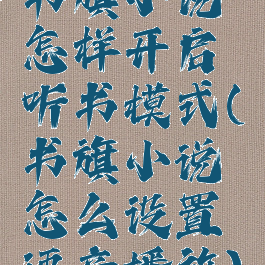 书旗小说
怎样开启
听书模式(
书旗小说
怎么设置
语音播放)